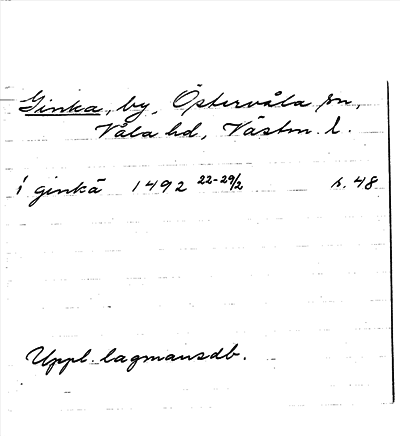 Ginka, by, Östervåla sn,
Våla hd, Västm. l.
i ginkā 1492 22-29/2 s. 48
Uppl. lagmansdb.